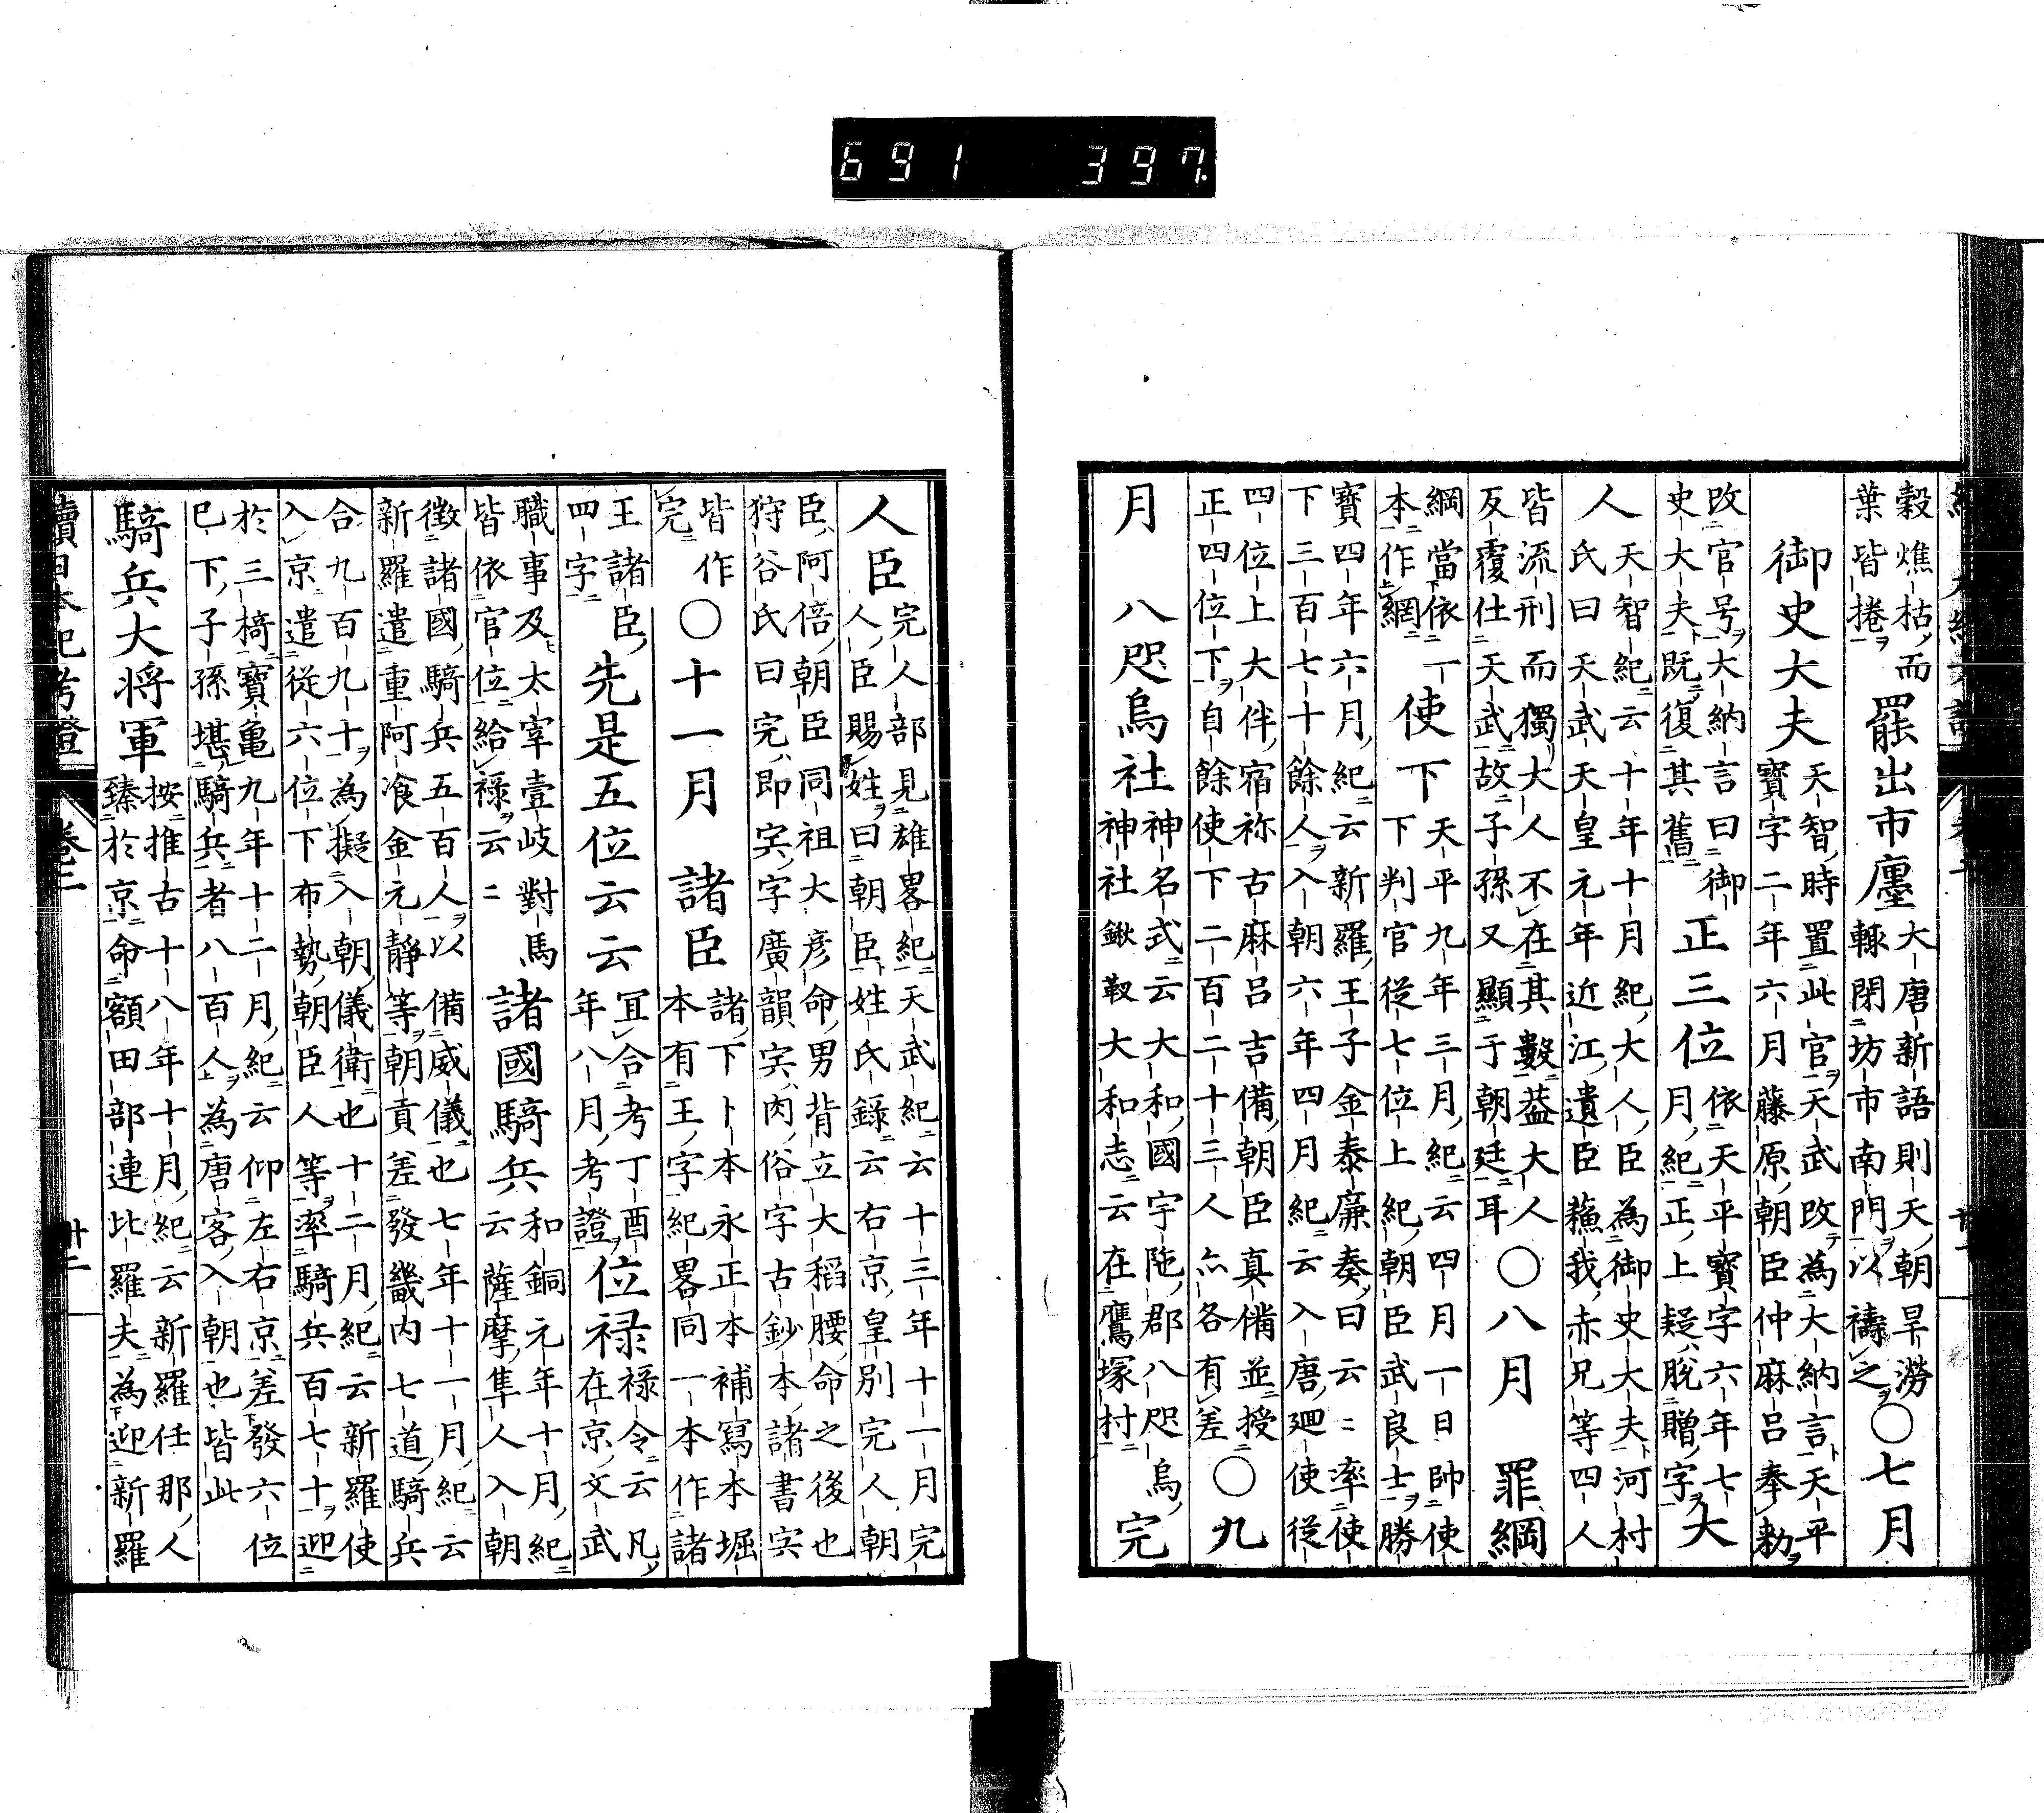 穀燋枯而葉皆捲罷出市廛大唐新語則天朝旱澇輙閉坊市南門以禱之〇七月
御史大夫天智時置此官天武改為大納言天平寶字二年六月藤原朝臣仲麻呂奉勅
改官号大納言曰御史大夫既復其舊正三位依天平寶字六年七月紀正上疑脱贈字大
人天智紀云十年十月紀大人臣為御史大夫河村氏曰天武天皇元年近江遺臣蘓我赤兄等四人
皆流刑而獨大人不在其數葢大人反覆仕天武故子孫又顯于朝廷耳〇八月 罪綱
綱當依一本作網使下天平九年三月紀云四月一日帥使下判官從七位上紀朝臣武良士勝
寶四年六月紀云新羅王子金泰廉奏曰云〻率使下三百七十餘人入朝六年四月紀云入唐廻使從
四位上大伴宿祢古麻呂吉備朝臣真備並授正四位下自餘使下二百二十三人亦各有差〇九
月 八咫烏社神名式云大和國宇陁郡八咫烏神社鍬靫大和志云在鷹塚村 完
人臣完人部見雄畧紀天武紀云十三年十一月完人臣賜姓曰朝臣姓氏錄云右京皇別完人朝
臣阿倍朝臣同祖大彦命男背立大稻腰命之後也狩谷氏曰完即宍字廣韻宍肉俗字古鈔本諸書宍
皆作完〇十一月 諸臣諸下卜本永正本補寫本堀本有王字紀畧同一本作諸
王諸臣四字先是五位云云冝合考丁酉年八月考證位禄禄令云凡在京文武
職事及太宰壹岐對馬皆依官位給禄云〻諸國騎兵和銅元年十月紀云薩摩隼人入朝
徵諸國騎兵五百人以備威儀也七年十一月紀云新羅遣重阿飡金元靜等朝貢差發畿内七道騎兵
合九百九十為擬入朝儀衛也十二月紀云新羅使入京遣從六位下布勢朝臣人等率騎兵百七十迎
於三椅寶亀九年十二月紀云仰左右京差發六位已下子孫堪騎兵者八百人為唐客入朝也皆此
騎兵大将軍按推古十八年十月紀云新羅任那人臻於京命額田部連比羅夫為迎新羅
續日本紀考證 卷三